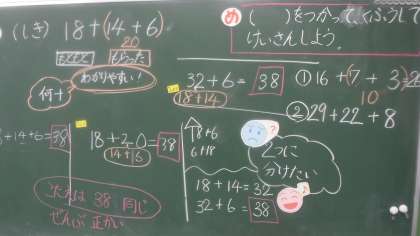 (しき) 18+(14+6)
20
もらった
わかりやすい!
何+
め ( )をつかって、くふうして
けいさんしよう。
32+6=38
18+14
①16+(7+3)=26
10
②29+22+8
8+14+6=38
18+20=38
14+6
18+6
6+18
?
2つに
分けたい
18+14=32
32+6=38
答えは 38 同じ
ぜんぶ 正かい